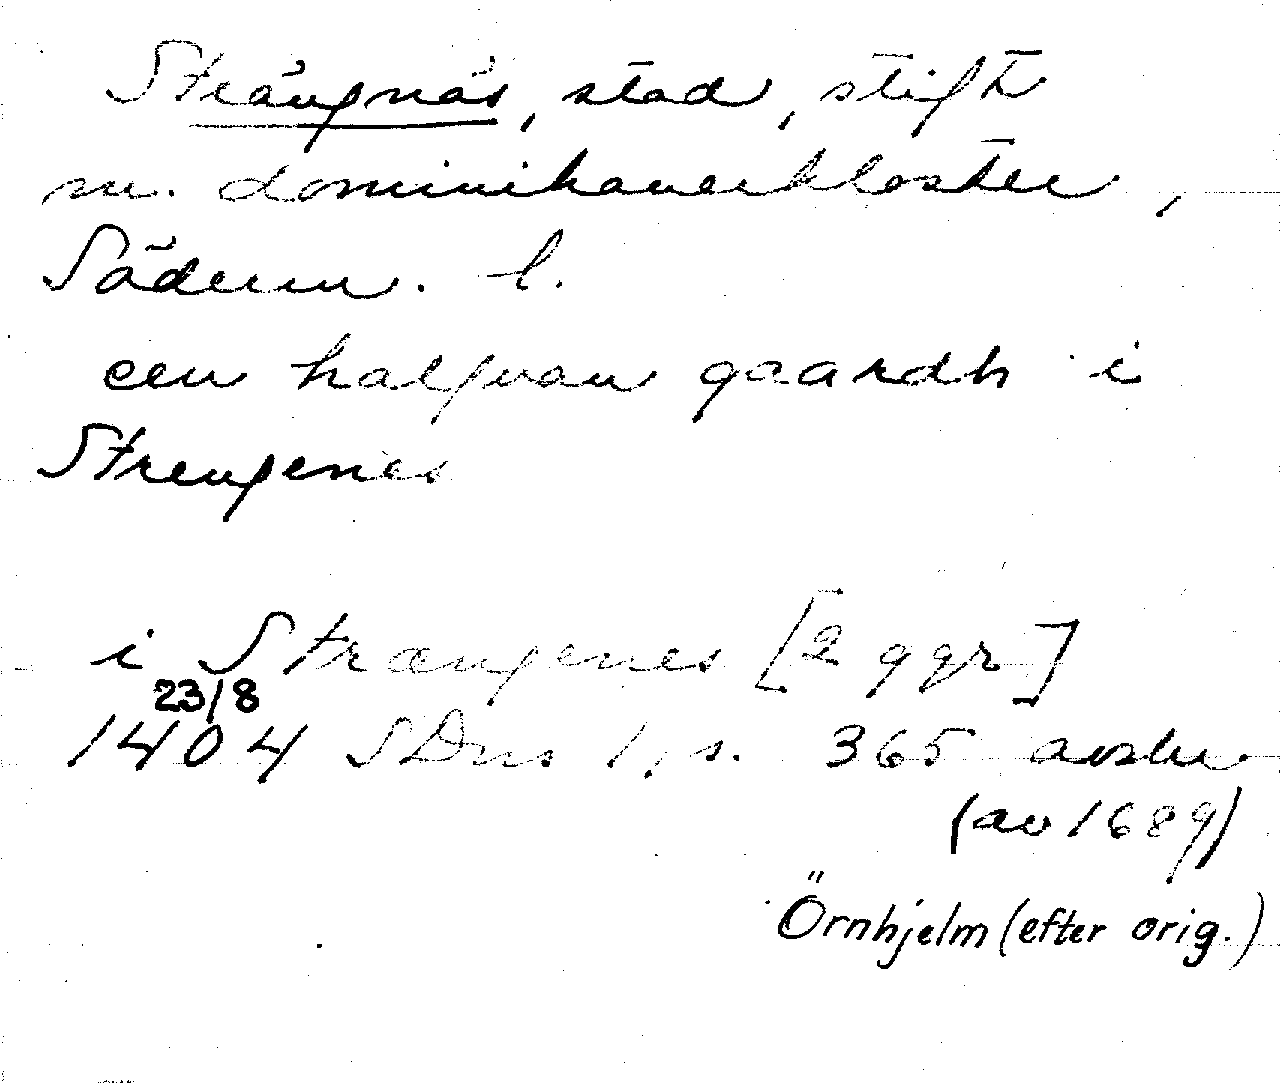 Strängnäs, stad, stift
m. dominikanerkloster,
Söderm. l.
een halfvan gaardh i
Strengenes
i Strængenes [2 ggr]
23/8
1404 SDns 1, s. 365 avskr
(av 1689)
Örnhjelm (efter orig.)